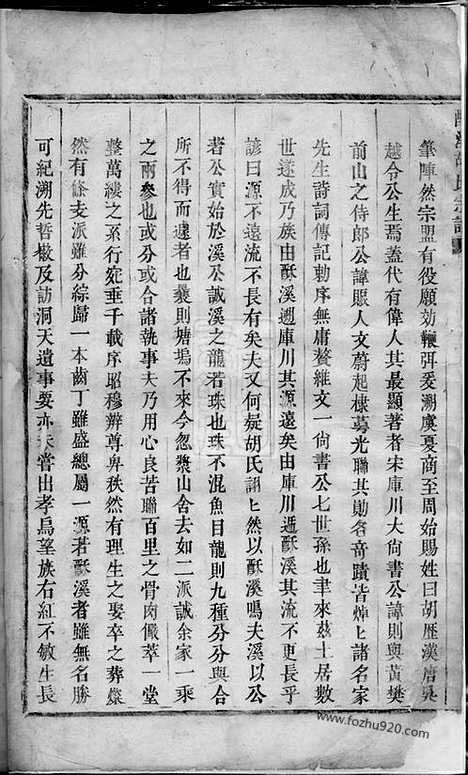 酥溪胡氏宗譜
筆陣然宗盟有役願効鞭弭爰溯虞夏商至周始賜姓曰胡歷漢唐吳
越令公生焉蓋代有偉人其最顯著者宋庫川大尚書公諱則與黃樊
前山之侍郎公諱賬人文蔚起棣萼光聯其勛名竒蹟皆焯匕諸名家
先生詩詞傳記勅序無庸贅維文一尚書公七世孫也聿來茲土居數
世遂成乃族由酥溪遡庫川其源遠矣由庫川遁酥溪其流不更長乎
諺曰源不遠流不長有矣夫又何疑胡氏詡匕然以酥溪鳴夫溪以公
者公實始於溪公誠溪之龍若珠也珠不混魚目龍則九種分分與合
所不得而違者也曩則塘塢不來今忽漿山舍去如二派誠余家一乘
之兩參也或分或合諸執事夫乃用心良苦聯百里之骨肉儼萃一堂
整萬縷之系行宛垂千載序昭穆辨尊卑秩然有理生之娶卒之葬燦
然有條支派雖分綜歸一本齒丁雖盛總屬一源若酥溪者雖無名勝
可紀溯先哲檄及訪洞天遺事要亦未嘗出孝烏望族右紅不敏生長
www.fozhu920.com